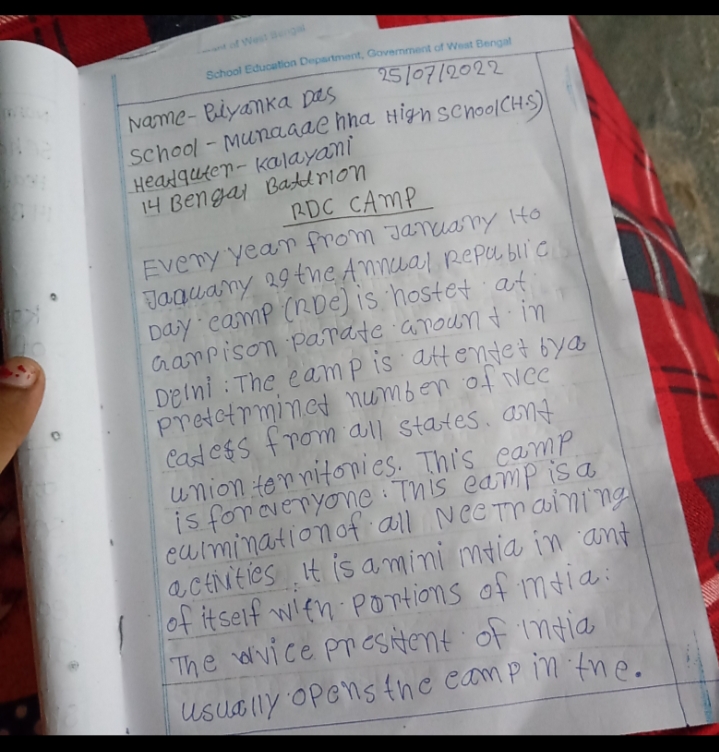 School Education Department, Government of West Bengal
25/07/2022
Name- Biyanka Das
School - Munaaae hna High School(H.S)
Headquten- Kalayani
14 Bengal Battrion
RDC CAMP
Every year from January 1to
Jaquany 29the Annual Republic
Day camp (RDC) is hostet at
Garrpison parate arount in
Delhi. The camp is attentet by a
pretetrminet number of NCC
cadess from all states. ant
union territories. This camp
is for everyone. This camp is a
culmination of all NCC Training
activities. It is a mini intia in ant
of itself with portions of intia.
The vice presitent of intia
usually opens the camp in the.